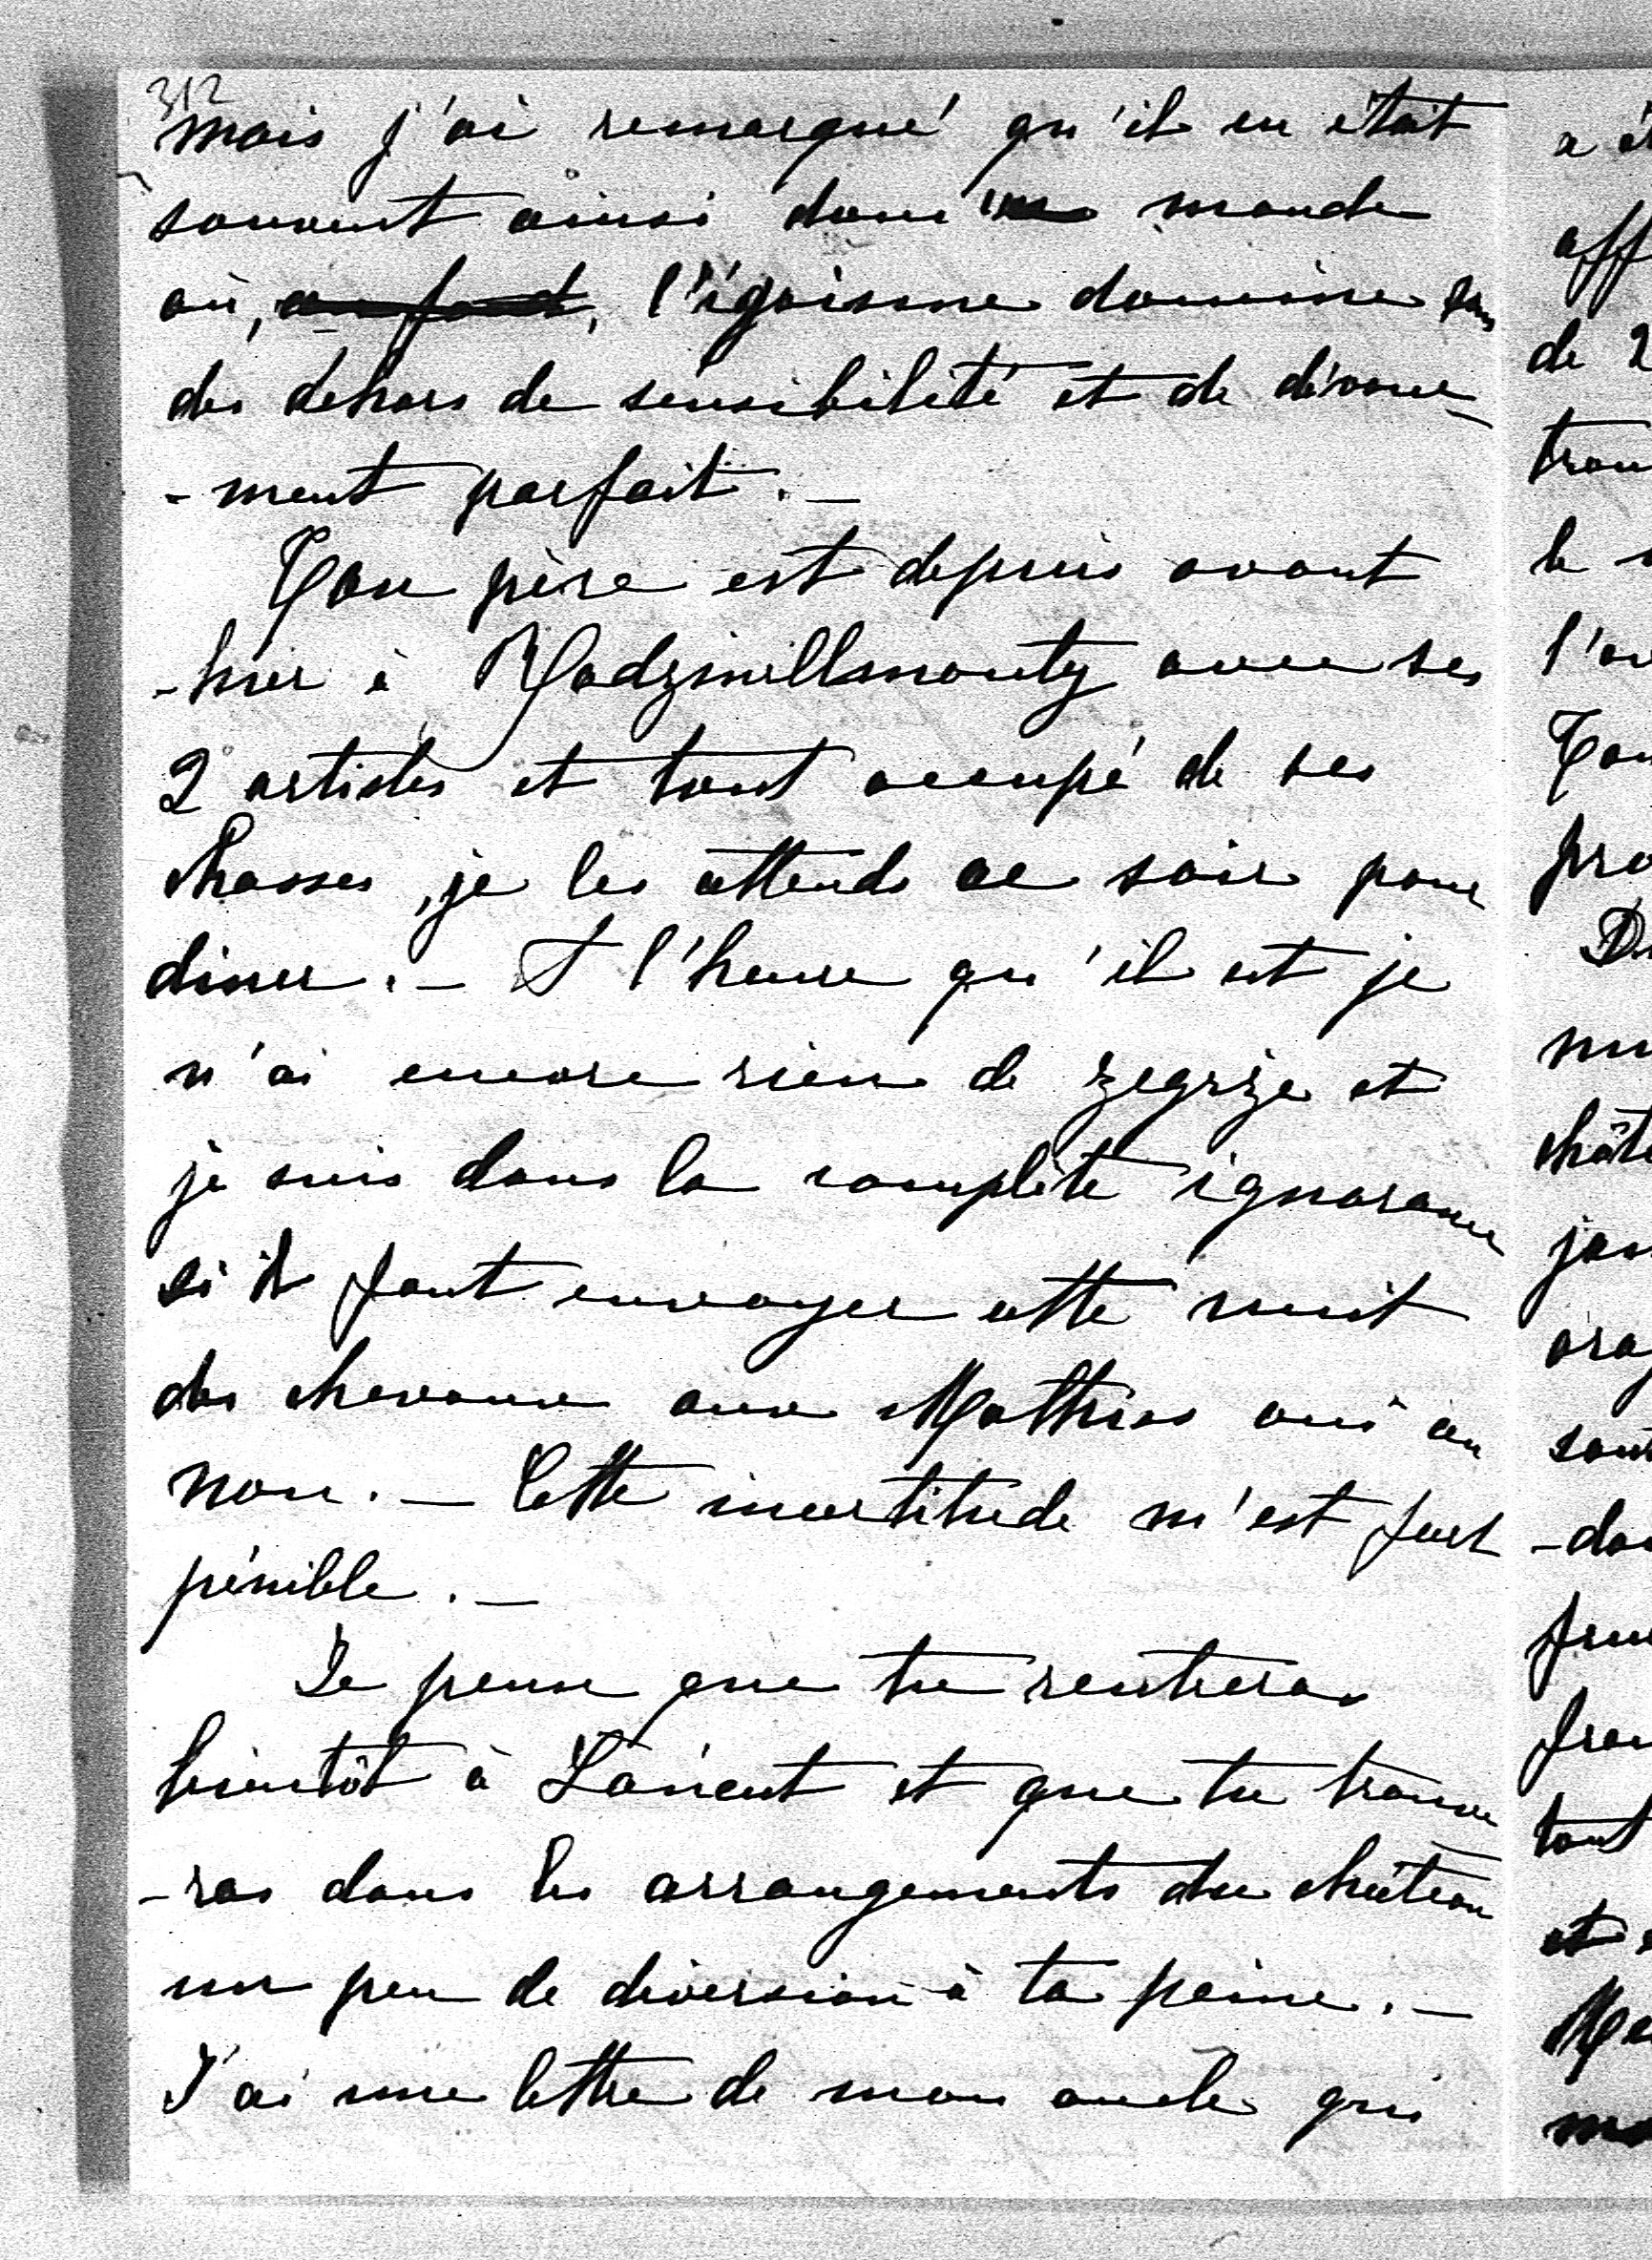 312
mais j'ai remarqué qu'il en était
souvent ainsi dans monde
où, au fond, l'égoisme domine sous
des dehors de sensibilité et de dévoue
-ment parfait. —
Ton père est depuis avant
-hier à Radziwillmonty avec ses
2 artistes et tout occupé de ses
chasses, je les attends ce soir pour
diner. — A l'heure qu'il est je
n'ai encore rien de Zegrze et
je suis dans la complète ignorance
si il faut envoyer cette nuit
des chevaux aux Mathias oui ou
non. — Cette incertitude m'est fort
pénible. —
Je pense que tu rentreras
bientôt à Láncut et que tu trouve
-ras dans les arrangements du château
un peu de diversion à ta peine. —
J'ai une lettre de mon oncle qui